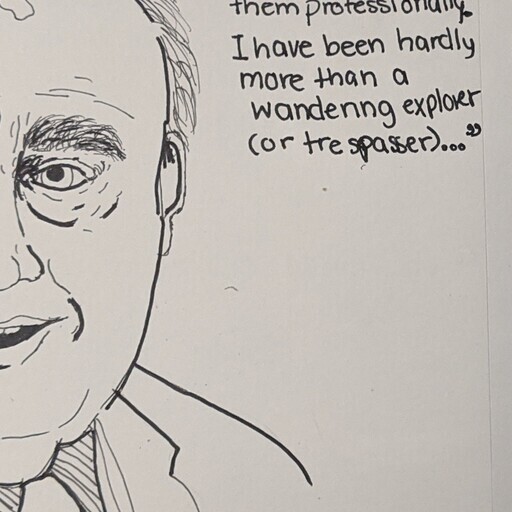 them professionally.
I have been hardly
more than a
wandering explorer
(or trespasser)..."